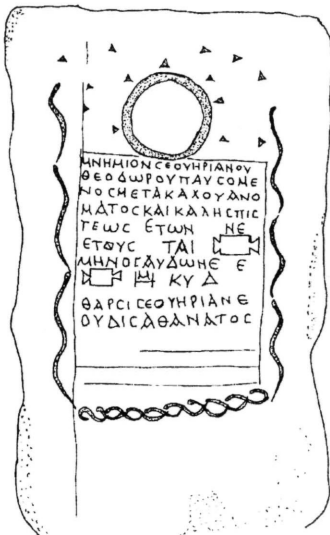 ΜΝΗΜΙΟΝCΕΟΥΗΡΙΑΝΟΥ
ΘΕΟΔΩΡΟΥΠΑΥCΟΜΕ
ΝΟCΜΕΤΑΚΑΛΟΥΑΝΟ
ΜΑΤΟCΚΑΙΚΑΛΗCΠΙC
ΤΕΩC ΕΤΩΝ ΝΕ
ΕΤΟΥC ΤΑΙ
ΜΗΝΟCΑΥΔΩΗΕ Ε
ΚΥ Δ
ΘΑΡCΙCΕΟΥΗΡΙΑΝΕ
ΟΥΔΙCΑΘΑΝΑΤΟC